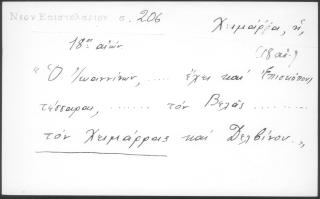 Νέον Επιστολάριον σ. 206
Χειμάρρα, ἡ,
18ος αιών
(18 αἰ.)
"Ὁ Ἰωαννίνων, ..... ἔχει καὶ Ἐπισκόπους
τέσσαρας, ........ τὸν Βελᾶς ........
τὸν Χειμάρρας καὶ Δελβίνου.„